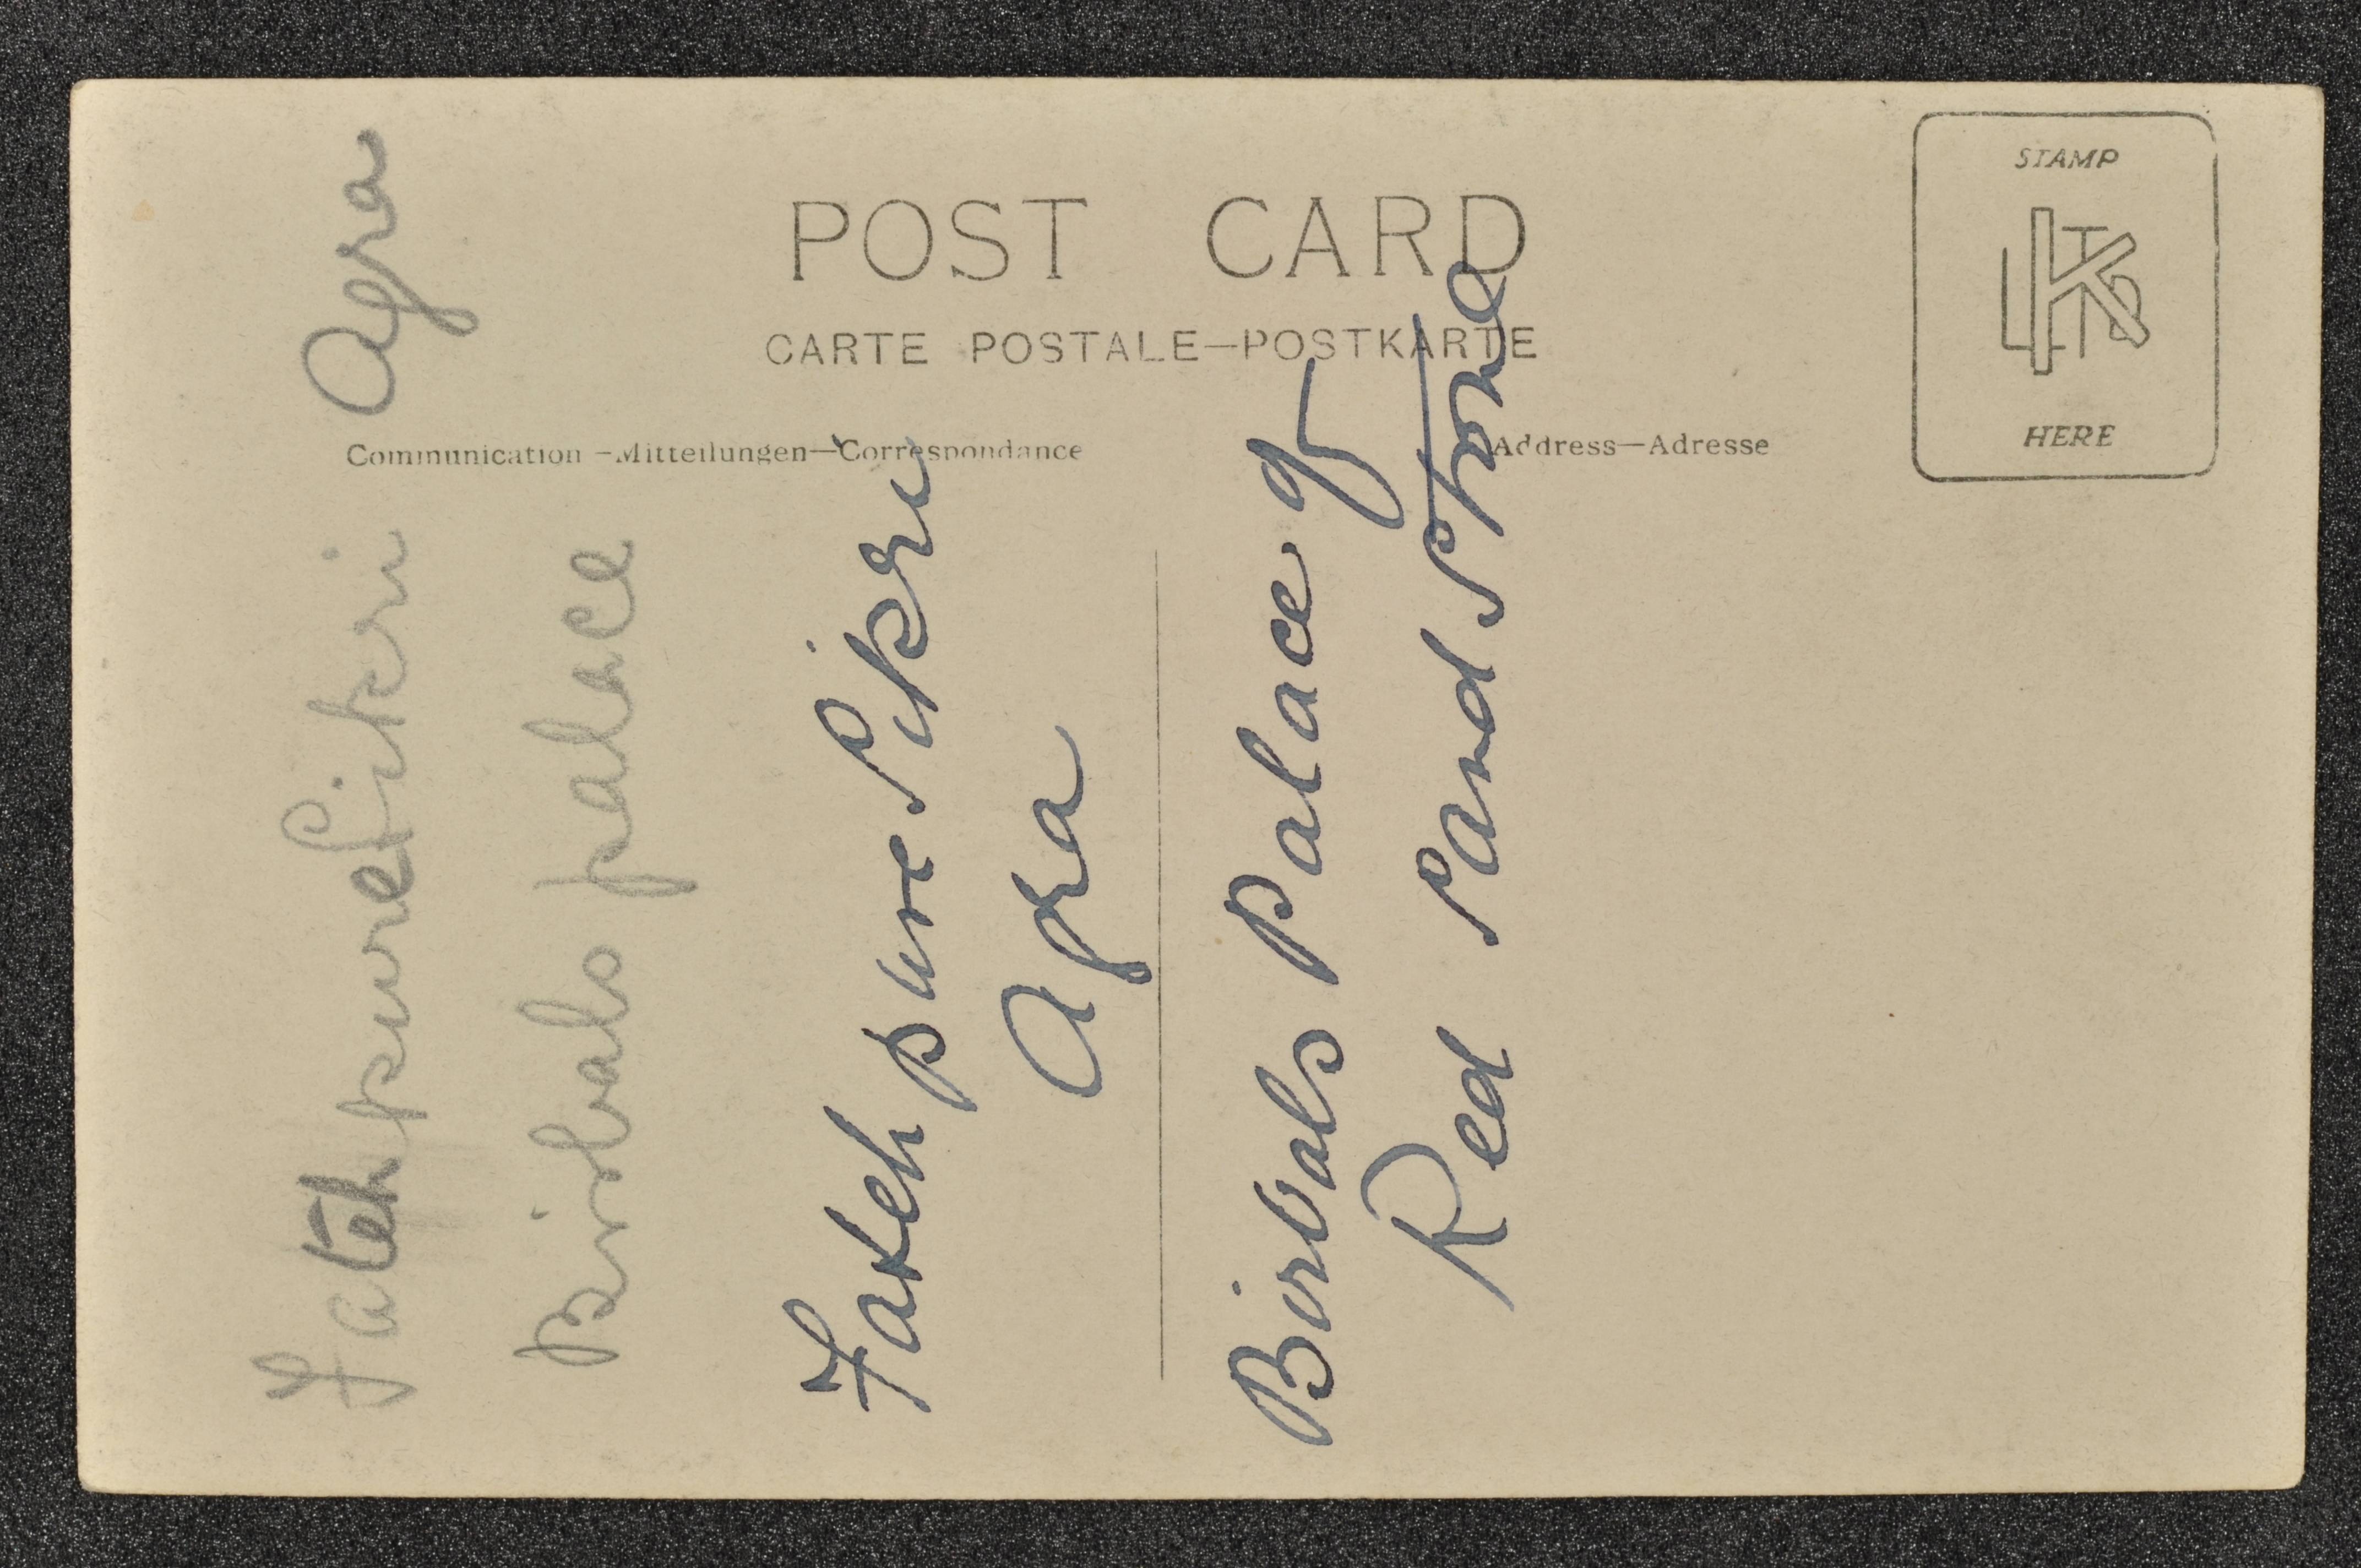 POST CARD
CARTE POSTALE—POSTKARTE
Communication—Mitteilungen—Correspondance
Address—Adresse
STAMP
HERE
Fatehpure Sikri Agra
Birbals palace
Fateh pure Sikri
Agra
Birbals Palace of
Red Sand Stone